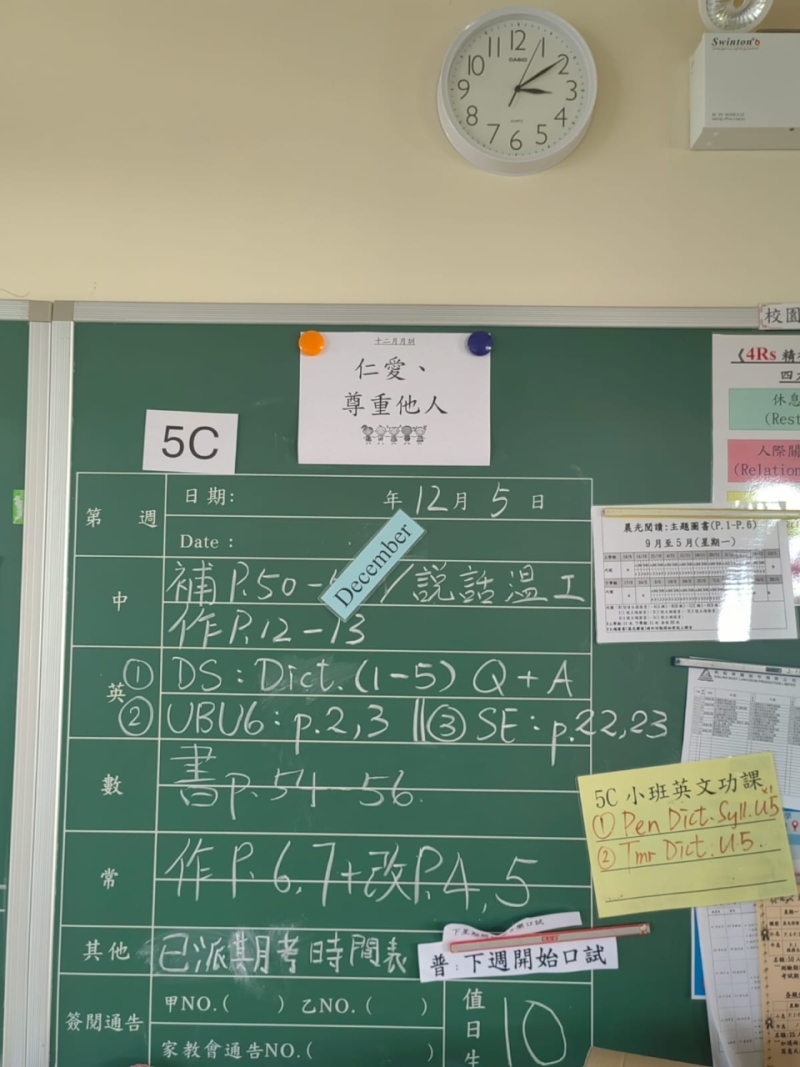 12 1 2 3 4 5 6 7 8 9 10 11
CASIO
QUARTZ
Swinton
校園
十二月月訓
仁愛、
尊重他人
5C
《4Rs 精
四
休息
(Rest
人際關
(Relation
第 週
日期: 年 12 月 5 日
Date :
December
晨光閱讀:主題圖書(P.1-P.6)
9月至5月(星期一)
中
補 P.50- //說話溫工
作 P.12-13
英
① DS: Dict. (1-5) Q + A
② UBU6: p.2,3 ||③ SE: p.22,23
數
書 P.54-56.
5C 小班英文功課
① Pen Dict. Syll. U5 x1
② Tmr Dict. U.5.
常
作 P.6,7+改P.4,5
其他
已派期考時間表
普:下週開始口試
簽閱通告
甲NO.( ) 乙NO.( )
家教會通告NO.( )
值日生
10